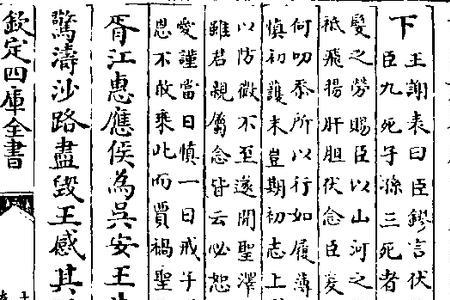 下
王謝表曰臣鏐言伏
臣九死子孫三死者
髮之勞賜臣以山河之
袛飛揚肝胆伏念臣爰
何叨忝所以行如履薄
慎初護末豈期初志上
以防微不至遂開聖澤
雖君親屬念皆云必恕
愛謹當日慎一日戒子
恩不敢乘此而賈禍聖
胥江惠應侯為吳安王
驚濤沙路盡毀王感其
欽定四庫全書